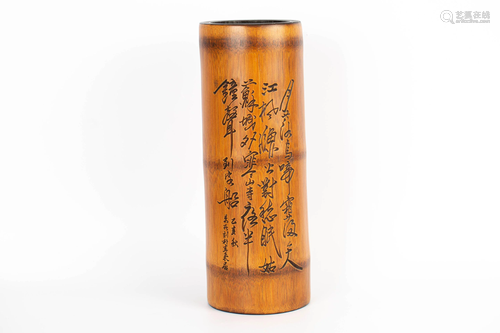 月落烏啼霜滿天
江楓漁火對愁眠姑
蘇城外寒山寺夜半
鐘聲到客船
乙亥秋
艺狐在线